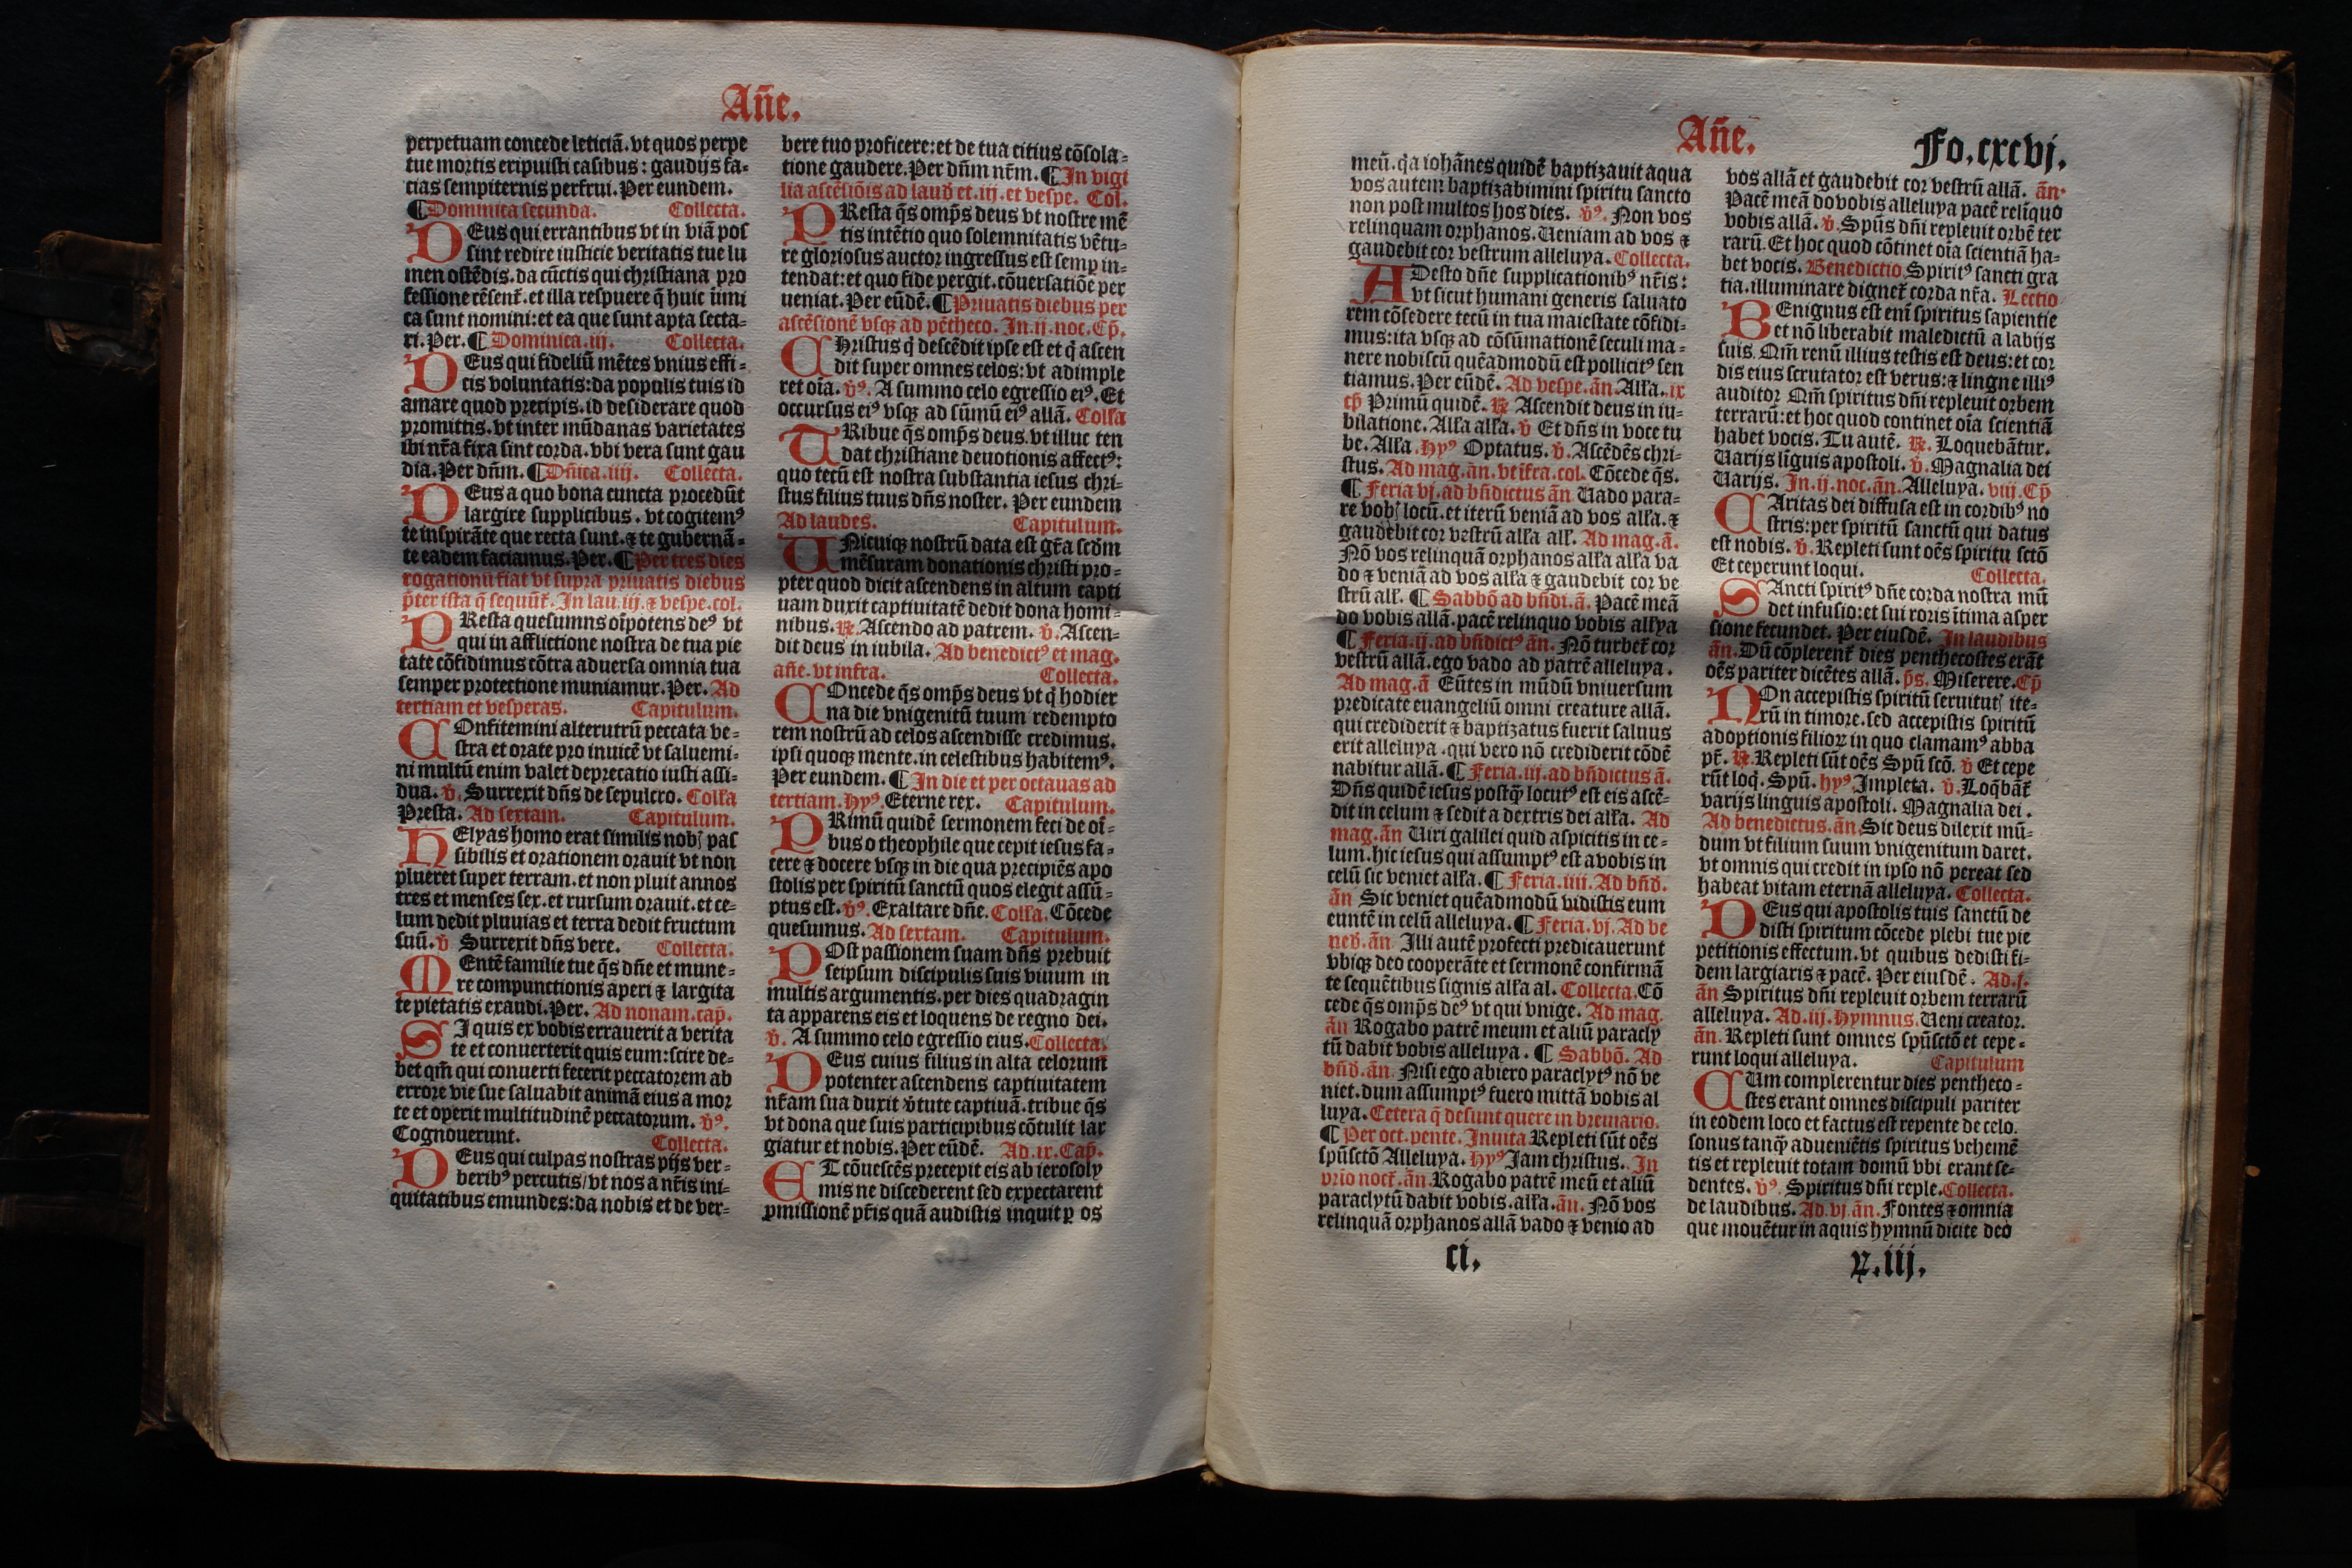 Añe.
perpetuam concede leticiã. vt quos perpe
tue mortis eripuisti casibus: gaudijs fa-
cias sempiternis perfrui. Per eundem.
¶Dominica secunda. Collecta.
DEus qui errantibus vt in viã pos
sint redire iusticie veritatis tue lu
men ostẽdis. da cũctis qui christiana pro
fessione cẽsent̃. et illa respuere q̃ huic inimi
ca sunt nomini: et ea que sunt apta secta-
ri. Per. ¶ Dominica. iij. Collecta.
DEus qui fideliũ mẽtes vnius effi-
cis voluntatis: da populis tuis id
amare quod precipis. id desiderare quod
promittis. vt inter mũdanas varietates
ibi nr̃a fixa sint corda. vbi vera sunt gau
dia. Per dñm. ¶Dñica. iiij. Collecta.
DEus a quo bona cuncta procedũt
largire supplicibus. vt cogitemꝰ
te inspirãte que recta sunt. ⁊ te gubernã-
te eadem faciamus. Per. ¶Per tres dies
rogationũ fiat vt supra priuatis diebus
p̃ter ista q̃ sequũt̃. In lau. iij. ⁊ vespe. col.
PResta quesumns oĩpotens deꝰ vt
qui in afflictione nostra de tua pie
tate cõfidimus cõtra aduersa omnia tua
semper protectione muniamur. Per. Ad
tertiam et vesperas. Capitulum.
COnfitemini alterutrũ peccata ve-
stra et orate pro inuicẽ vt saluemi-
ni multũ enim valet deprecatio iusti assi-
dua. ℣. Surrexit dñs de sepulcro. Colľa
Presta. Ad sextam. Capitulum.
HElyas homo erat similis nobꝭ pas
sibilis et orationem orauit vt non
plueret super terram. et non pluit annos
tres et menses sex. et rursum orauit. et ce-
lum dedit pluuias et terra dedit fructum
suũ. ℣ Surrexit dñs vere. Collecta.
MEntẽ familie tue q̃s dñe et mune-
re compunctionis aperi ⁊ largita
te pietatis exaudi. Per. Ad nonam. cap̃.
SI quis ex vobis errauerit a verita
te et conuerterit quis eum: scire de-
bet qm̃ qui conuerti fecerit peccatorem ab
errore vie sue saluabit animã eius a mor
te et operit multitudinẽ peccatorum. ℣ꝰ.
Cognouerunt. Collecta.
DEus qui culpas nostras pijs ver-
beribꝰ percutis/ vt nos a nr̃is ini-
quitatibus emundes: da nobis et de ver-
bere tuo proficere: et de tua citius cõsola-
tione gaudere. Per dñm nr̃m. ¶In vigi
lia ascẽsiõis ad laud̃ et. iij. et vespe. Col.
PResta q̃s omp̃s deus vt nostre mẽ
tis intẽtio quo solemnitatis vẽtu-
re gloriosus auctor ingressus est semp in-
tendat: et quo fide pergit. cõuersatiõe per
ueniat. Per eũdẽ. ¶Priuatis diebus per
ascẽsionẽ vsqꝫ ad pẽtheco. In. ij. noc. Cp̃.
CHristus q̃ descẽdit ipse est et q̃ ascen
dit super omnes celos: vt adimple
ret oĩa. ℣ꝰ. A summo celo egressio eiꝰ. Et
occursus eiꝰ vsqꝫ ad sũmũ eiꝰ allã. Colľa
TRibue q̃s omp̃s deus. vt illuc ten
dat christiane deuotionis affectꝰ:
quo tecũ est nostra substantia iesus chri-
stus filius tuus dñs noster. Per eundem
Ad laudes. Capitulum.
UNicuiqꝫ nostrũ data est gr̃a scd̃m
mẽsuram donationis christi pro-
pter quod dicit ascendens in altum capti
uam duxit captiuitatẽ dedit dona homi-
nibus. ℟. Ascendo ad patrem. ℣. Ascen-
dit deus in iubila. Ad benedictꝰ et mag.
añe. vt infra. Collecta.
COncede q̃s omp̃s deus vt q̃ hodier
na die vnigenitũ tuum redempto
rem nostrũ ad celos ascendisse credimus.
ipsi quoqꝫ mente. in celestibus habitemꝰ.
Per eundem. ¶ In die et per octauas ad
tertiam. Hyꝰ. Eterne rex. Capitulum.
PRimũ quidẽ sermonem feci de oĩ-
bus o theophile que cepit iesus fa-
cere ⁊ docere vsqꝫ in die qua precipiẽs apo
stolis per spiritũ sanctũ quos elegit assũ-
ptus est. ℣ꝰ. Exaltare dñe. Colľa. Cõcede
quesumus. Ad sextam. Capitulum.
POst passionem suam dñs prebuit
seipsum discipulis suis viuum in
multis argumentis. per dies quadragin
ta apparens eis et loquens de regno dei.
℣. A summo celo egressio eius. Collecta.
DEus cuius filius in alta celorum
potenter ascendens captiuitatem
nr̃am sua duxit v̾tute captiuã. tribue q̃s
vt dona que suis participibus cõtulit lar
giatur et nobis. Per eũdẽ. Ad. ix. Cap̃.
ET cõuescẽs precepit eis ab ierosoly
mis ne discederent sed expectarent
ꝓmissionẽ pr̃is quã audistis inquit ꝑ os
Añe. Fo. cxcvj.
meũ. q̃a iohãnes quidẽ baptizauit aqua
vos autem baptizabimini spiritu sancto
non post multos hos dies. ℣ꝰ. Non vos
relinquam orphanos. Ueniam ad vos ⁊
gaudebit cor vestrum alleluya. Collecta.
ADesto dñe supplicationibꝰ nr̃is:
vt sicut humani generis saluato
rem cõsedere tecũ in tua maiestate cõfidi-
mus: ita vsqꝫ ad cõsũmationẽ seculi ma-
nere nobiscũ quẽadmodũ est pollicitꝰ sen
tiamus. Per eũdẽ. Ad vespe. ãn. Alľa. ix
cp̃ Primũ quidẽ. ℟ Ascendit deus in iu-
bilatione. Alľa alľa. ℣ Et dñs in voce tu
be. Alľa. Hyꝰ Optatus. ℣. Ascẽdẽs chri-
stus. Ad mag. ãn. vt ĩfra. col. Cõcede q̃s.
¶ Feria vj. ad bñdictus ãn Uado para-
re vobꝭ locũ. et iterũ veniã ad vos alľa. ⁊
gaudebit cor vestrũ alľa alľ. Ad mag. ã.
Nõ vos relinquã orphanos alľa alľa va
do ⁊ veniã ad vos alľa ⁊ gaudebit cor ve
strũ alľ. ¶ Sabbõ ad bñdi. ã. Pacẽ meã
do vobis allã. pacẽ relinquo vobis allya
¶ Feria. ij. ad bñdictꝰ ãn. Nõ turbet̃ cor
vestrũ allã. ego vado ad patrẽ alleluya.
Ad mag. ã Eũtes in mũdũ vniuersum
predicate euangeliũ omni creature allã.
qui crediderit ⁊ baptizatus fuerit saluus
erit alleluya. qui vero nõ crediderit cõdẽ
nabitur allã. ¶ Feria. iij. ad bñdictus ã.
Dñs quidẽ iesus postq̃ locutꝰ est eis ascẽ-
dit in celum ⁊ sedit a dextris dei alľa. Ad
mag. ãn Uiri galilei quid aspicitis in ce-
lum. hic iesus qui assumptꝰ est a vobis in
celũ sic veniet alľa. ¶ Feria. iiij. Ad bñd̃.
ãn Sic veniet quẽadmodũ vidistis eum
euntẽ in celũ alleluya. ¶ Feria. vj. Ad be
ned̃. ãn. Illi autẽ profecti predicauerunt
vbiqꝫ deo cooperãte et sermonẽ confirmã
te sequẽtibus signis alľa al. Collecta. Cõ
cede q̃s omp̃s deꝰ vt qui vnige. Ad mag.
ãn Rogabo patrẽ meum et aliũ paracly
tũ dabit vobis alleluya. ¶ Sabbõ. Ad
bñd̃. ãn. Nisi ego abiero paraclytꝰ nõ ve
niet. dum assumptꝰ fuero mittã vobis al
luya. Cetera q̃ desunt quere in breuiario.
¶ Per oct. pente. Inuita Repleti sũt oẽs
spũsctõ Alleluya. Hyꝰ Jam christus. In
prĩo noct̃. ãn. Rogabo patrẽ meũ et aliũ
paraclytũ dabit vobis. alľa. ãn. Nõ vos
relinquã orphanos allã vado ⁊ venio ad
ci.
vos allã et gaudebit cor vestrũ allã. ãn.
Pacẽ meã do vobis alleluya pacẽ reliquo
vobis allã. ℣. Spũs dñi repleuit orbẽ ter
rarũ. Et hoc quod cõtinet oĩa scientiã ha-
bet vocis. Benedictio Spiritꝰ sancti gra
tia. illuminare dignet̃ corda nr̃a. Lectio
BEnignus est em̃ spiritus sapientie
et nõ liberabit maledictũ a labijs
suis. Qm̃ renũ illius testis est deus: et cor
dis eius scrutator est verus: ⁊ lingne illiꝰ
auditor Qm̃ spiritus dñi repleuit orbem
terrarũ: et hoc quod continet oĩa scientiã
habet vocis. Tu autẽ. ℟. Loquebãtur.
Uarijs liguis apostoli. ℣. Magnalia dei
Uarijs. In. ij. noc. ãn. Alleluya. viij. Cp̃
CAritas dei diffusa est in cordibꝰ no
stris: per spiritũ sanctũ qui datus
est nobis. ℣. Repleti sunt oẽs spiritu sctõ
Et ceperunt loqui. Collecta.
SAncti spiritꝰ dñe corda nostra mũ
det infusio: et sui roris ĩtima asper
sione fecundet. Per eiusdẽ. In laudibus
ãn. Dũ cõplerent̃ dies penthecostes erãt
oẽs pariter dicẽtes allã. p̃s. Miserere. Cp̃
NOn accepistis spiritũ seruitutꝭ ite-
rũ in timore. sed accepistis spiritũ
adoptionis filioꝝ in quo clamamꝰ abba
pr̃. ℟. Repleti sũt oẽs Spũ scõ. ℣ Et cepe
rũt loq̃. Spũ. hyꝰ. Impleta. ℣. Loq̃bãt̃
varijs linguis apostoli. Magnalia dei.
Ad benedictus. ãn. Sic deus dilexit mũ-
dum vt filium suum vnigenitum daret.
vt omnis qui credit in ipso nõ pereat sed
habeat vitam eternã alleluya. Collecta.
DEus qui apostolis tuis sanctũ de
disti spiritum cõcede plebi tue pie
petitionis effectum. vt quibus dedisti fi-
dem largiaris ⁊ pacẽ. Per eiusdẽ. Ad. j.
ãn Spiritus dñi repleuit orbem terrarũ
alleluya. Ad. iij. Hymnus. Ueni creator.
ãn. Repleti sunt omnes spũsctõ et cepe-
runt loqui alleluya. Capitulum
CUm complerentur dies pentheco-
stes erant omnes discipuli pariter
in eodem loco et factus est repente de celo.
sonus tanq̃ adueniẽtis spiritus vehemẽ
tis et repleuit totam domũ vbi erant se-
dentes. ℣ꝰ. Spiritus dñi reple. Collecta.
de laudibus. Ad. vj. ãn. Fontes ⁊ omnia
que mouẽtur in aquis hymnũ dicite deo
iij.